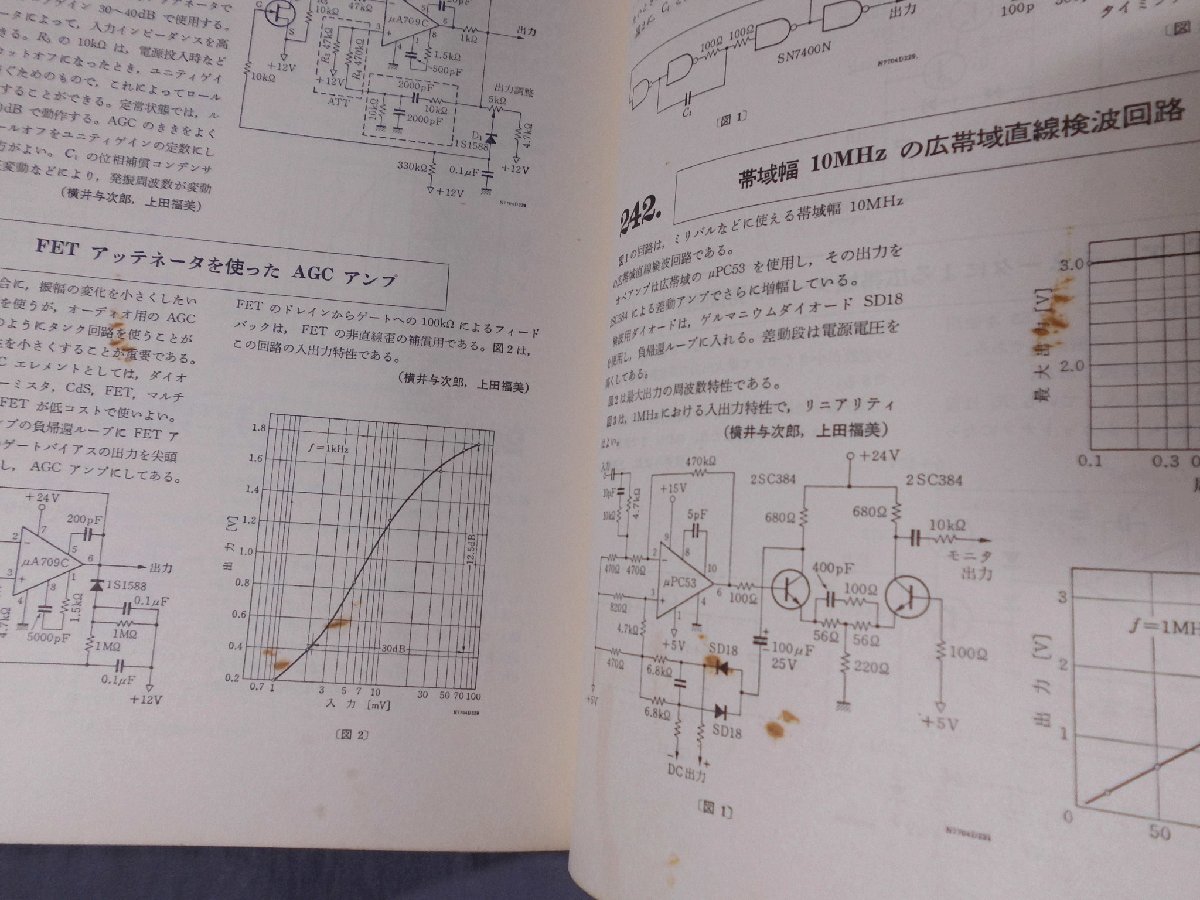 ゲイン 30～40dB で使用する。
ータによって，入力インピーダンスを高
きる。R₅ の 10kΩ は，電源投入時など
ットオフになったとき，ユニティゲイ
ぐためのもので，これによってロール
することができる。定常状態では，ル
0dB で動作する。AGC のききをよく
ールオフをユニティゲインの定数にし
方がよい。C₁ の位相補償コンデンサ
変動などにより，発振周波数が変動
(横井与次郎，上田福美)
G
S
10kΩ
10kΩ
+12V
R₃ 47kΩ
R₄ 470kΩ
μA709C
1.5kΩ
500pF
1kΩ
出力
+12V
ATT
2000pF
10kΩ
10kΩ
2000pF
出力調整
5kΩ
D₁
1S1588
4.7kΩ
330kΩ
0.1μF
+12V
+12V
FET アッテネータを使った AGC アンプ
合に，振幅の変化を小さくしたい
を使うが，オーディオ用の AGC
のようにタンク回路を使うことが
を小さくすることが重要である。
C エレメントとしては，ダイオ
ーミスタ，CdS，FET，マルチ
FET が低コストで使いよい。
ンプの負帰還ループに FET ア
ゲートバイアスの出力を尖頭
し，AGC アンプにしてある。
FET のドレインからゲートへの 100kΩ によるフィード
バックは，FET の非直線歪の補償用である。図2は，
この回路の入出力特性である。
(横井与次郎，上田福美)
+24V
200pF
2
7
5
6
μA709C
出力
3
4
8
1
1S1588
4.7kΩ
5000pF
1.5kΩ
0.1μF
1MΩ
1MΩ
0.1μF
+12V
1.8
1.6
1.4
1.2
1.0
0.8
0.6
0.4
0.2
出力 [V]
f=1kHz
12.5dB
30dB
0.7 1 3 5 7 10 30 50 70 100
入力 [mV]
〔図 2〕
出力
100Ω
100Ω
SN7400N
C₁
〔図 1〕
100p
タイミング
〔図
242.
帯域幅 10MHz の広帯域直線検波回路
図1の回路は，ミリバルなどに使える帯域幅 10MHz
の広帯域直線検波回路である。
オペアンプは広帯域の μPC53 を使用し，その出力を
2SC384による差動アンプでさらに増幅している。
検波用ダイオードは，ゲルマニウムダイオード SD18
を使用し，負帰還ループに入れる。差動段は電源電圧を
高くしてある。
図2は最大出力の周波数特性である。
図3は，1MHzにおける入出力特性で，リニアリティ
はよい。
(横井与次郎，上田福美)
入力
10pF
4.7kΩ
470kΩ
+15V
5pF
470Ω
470Ω
9
8
10
2
3
6
1
4
μPC53
820Ω
4.7kΩ
+5V
100Ω
2SC384
+24V
2SC384
680Ω
680Ω
10kΩ
モニタ
出力
400pF
100Ω
56Ω
56Ω
220Ω
100Ω
+5V
100μF
25V
470Ω
6.8kΩ
SD18
6.8kΩ
SD18
+5V
−
+
DC出力
〔図 1〕
3.0
2.0
最大出力 [V]
0.1 0.3
3
2
1
0
出力 [V]
f=1MH
50